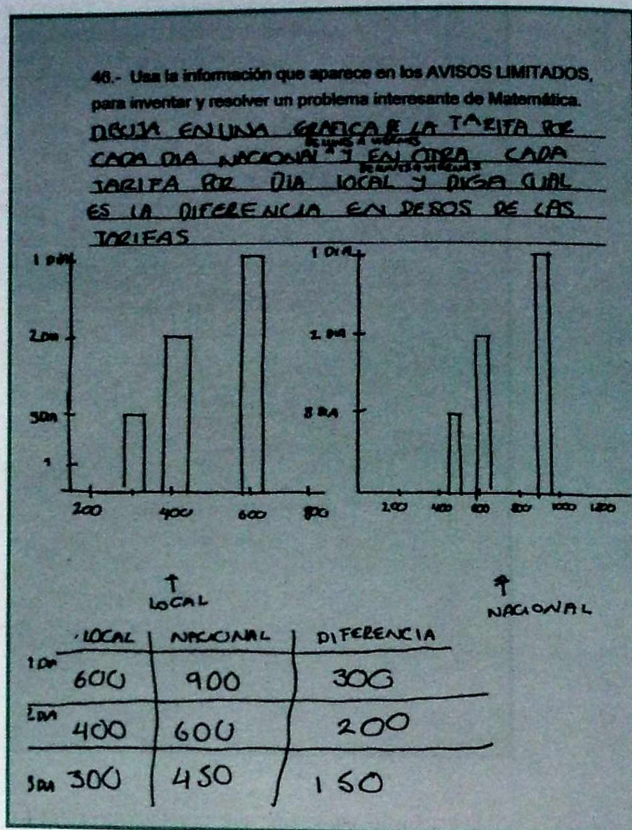 46.- Usa la información que aparece en los AVISOS LIMITADOS,
para inventar y resolver un problema interesante de Matemática.
DIBUJA EN UNA GRAFICA LA TARIFA POR
DE LUNES A VIERNES
CADA DIA NACIONAL Y EN OTRA CADA
DE LUNES A VIERNES
TARIFA POR DIA LOCAL Y DIGA CUAL
ES LA DIFERENCIA EN PESOS DE LAS
TARIFAS
1 DIA
2 DIA
3 DIA
1
200 400 600 800
↑
LOCAL
1 DIA
2 DIA
3 DIA
200 400 600 800 1000 1200
↑
NACIONAL
LOCAL NACIONAL DIFERENCIA
1 DIA 600 900 300
2 DIA 400 600 200
3 DIA 300 450 150